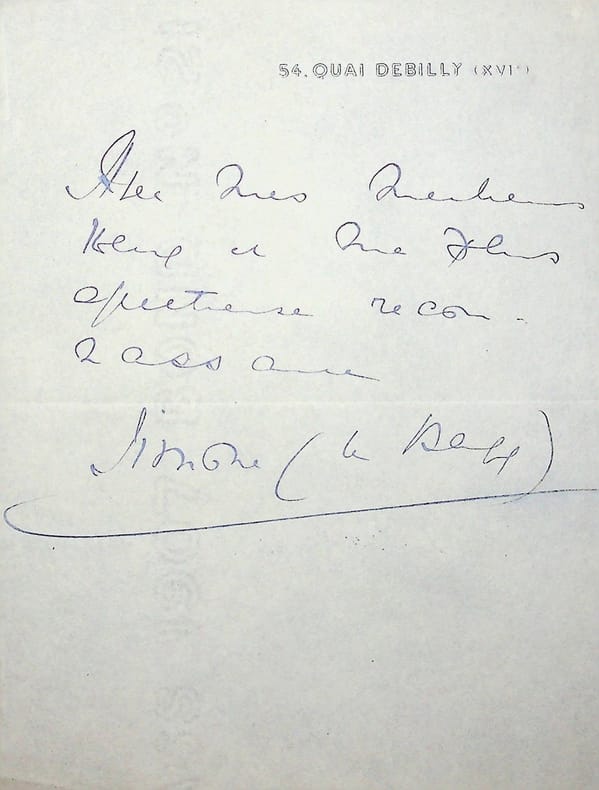 54. QUAI DEBILLY (XVIe)
Avec mes meilleurs
vœux et ma plus
affectueuse recon-
naissance
Simone (Le Bargy)